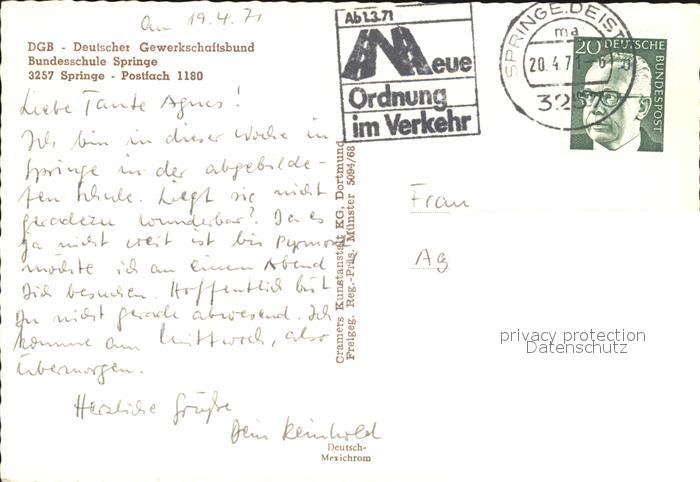 Am 19.4.71
DGB - Deutscher Gewerkschaftsbund
Bundesschule Springe
3257 Springe - Postfach 1180
Liebe Tante Agnes!
Ich bin in dieser Woche in
Springe in der abgebilde-
ten Schule. Liegt sie nicht
geradezu wunderbar? Da es
ja nicht weit ist bis Pyrmont
möchte ich an einem Abend
Dich besuchen. Hoffentlich bist
Du nicht gerade abwesend. Ich
komme am Mittwoch, also
übermorgen.
Herzliche Grüße
Dein Reinhold
Deutsch-
Mexichrom
Cramers Kunstanstalt KG, Dortmund
Freigeg. Reg.-Präs. Münster 5094/68
Ab 1.3.71
Neue
Ordnung
im Verkehr
SPRINGE, DEIST
ma
20.4.71-6
3257
20 DEUTSCHE
BUNDESPOST
Frau
Ag
privacy protection
Datenschutz